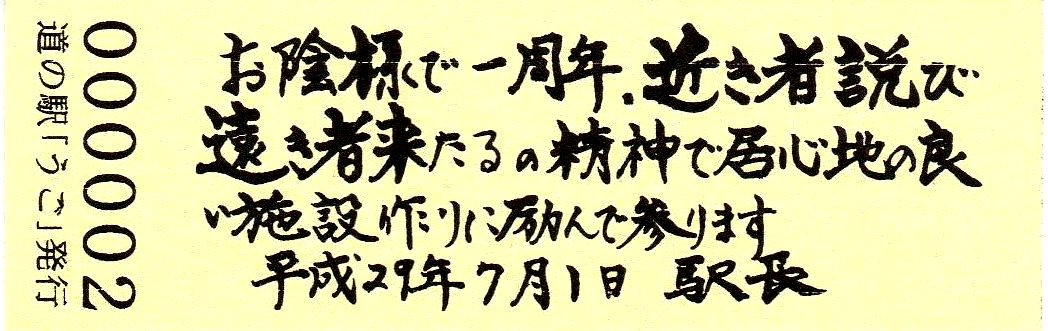 お陰様で一周年、近き者説び
遠き者来たるの精神で居心地の良
い施設作りに励んで参ります
平成29年7月1日 駅長
0000002
道の駅「うご」発行